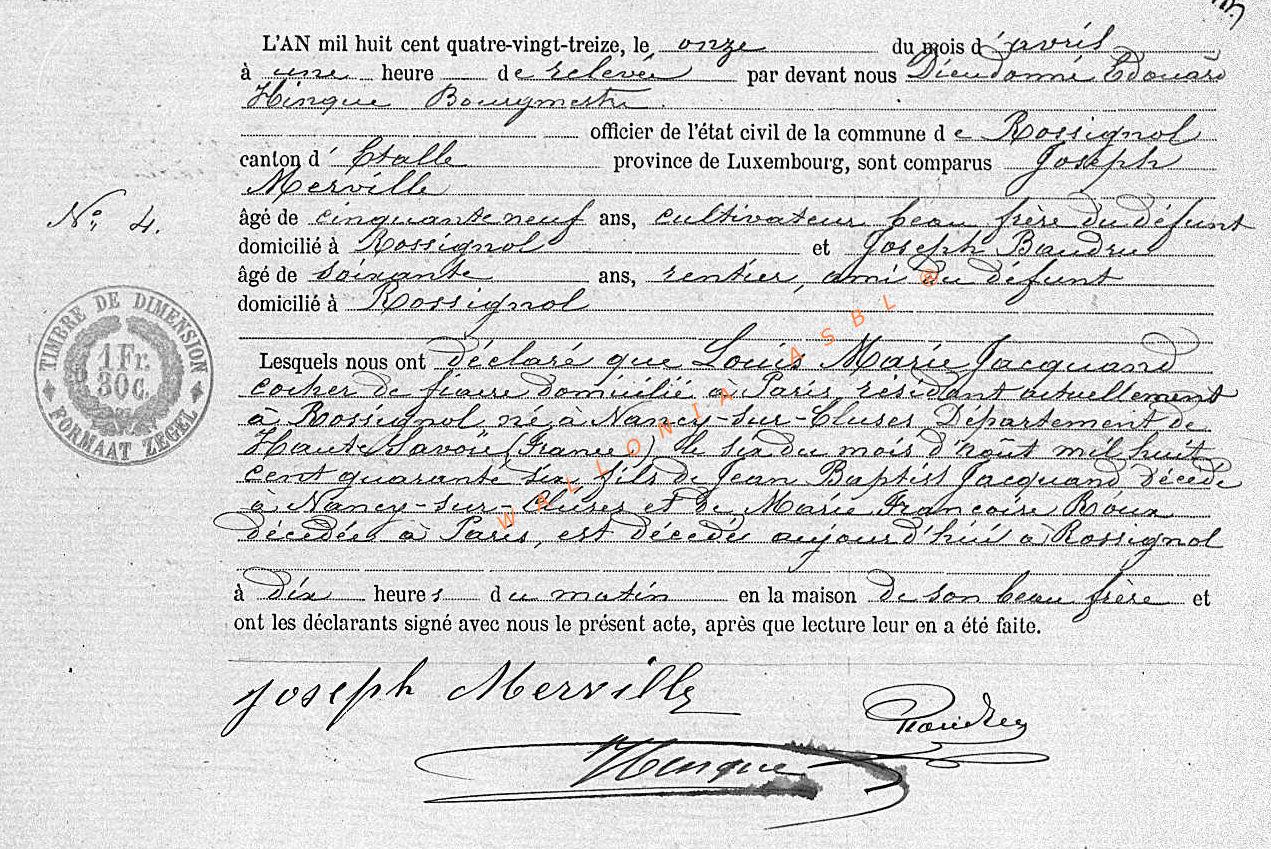 L'AN mil huit cent quatre-vingt-treize, le onze du mois d'avril
à une heure de relevée par devant nous Dieudonné Edouard
Hinque Bourgmestre
officier de l'état civil de la commune de Rossignol
canton d'Etalle province de Luxembourg, sont comparus Joseph
Merville
No. 4.
âgé de cinquante neuf ans, cultivateur beau frère du défunt
domicilié à Rossignol et Joseph Baudru
âgé de soixante ans, rentier, ami du défunt
domicilié à Rossignol
TIMBRE DE DIMENSION
1 Fr.
30 C.
FORMAAT ZEGEL
Lesquels nous ont déclaré que Louis Marie Jacquand
cocher de fiacre domicilié à Paris résidant actuellement
à Rossignol né à Nancy-sur-Cluses Département de
Haute Savoie (France) le six du mois d'août mil huit
cent quarante six, fils de Jean Baptist Jacquand décédé
à Nancy-sur-Cluses et de Marie Françoise Roux
décédée à Paris, est décédé aujourd'hui à Rossignol
à dix heures du matin en la maison de son beau frère et
ont les déclarants signé avec nous le présent acte, après que lecture leur en a été faite.
Joseph Merville
Hinque
WALLONIA ASBL @